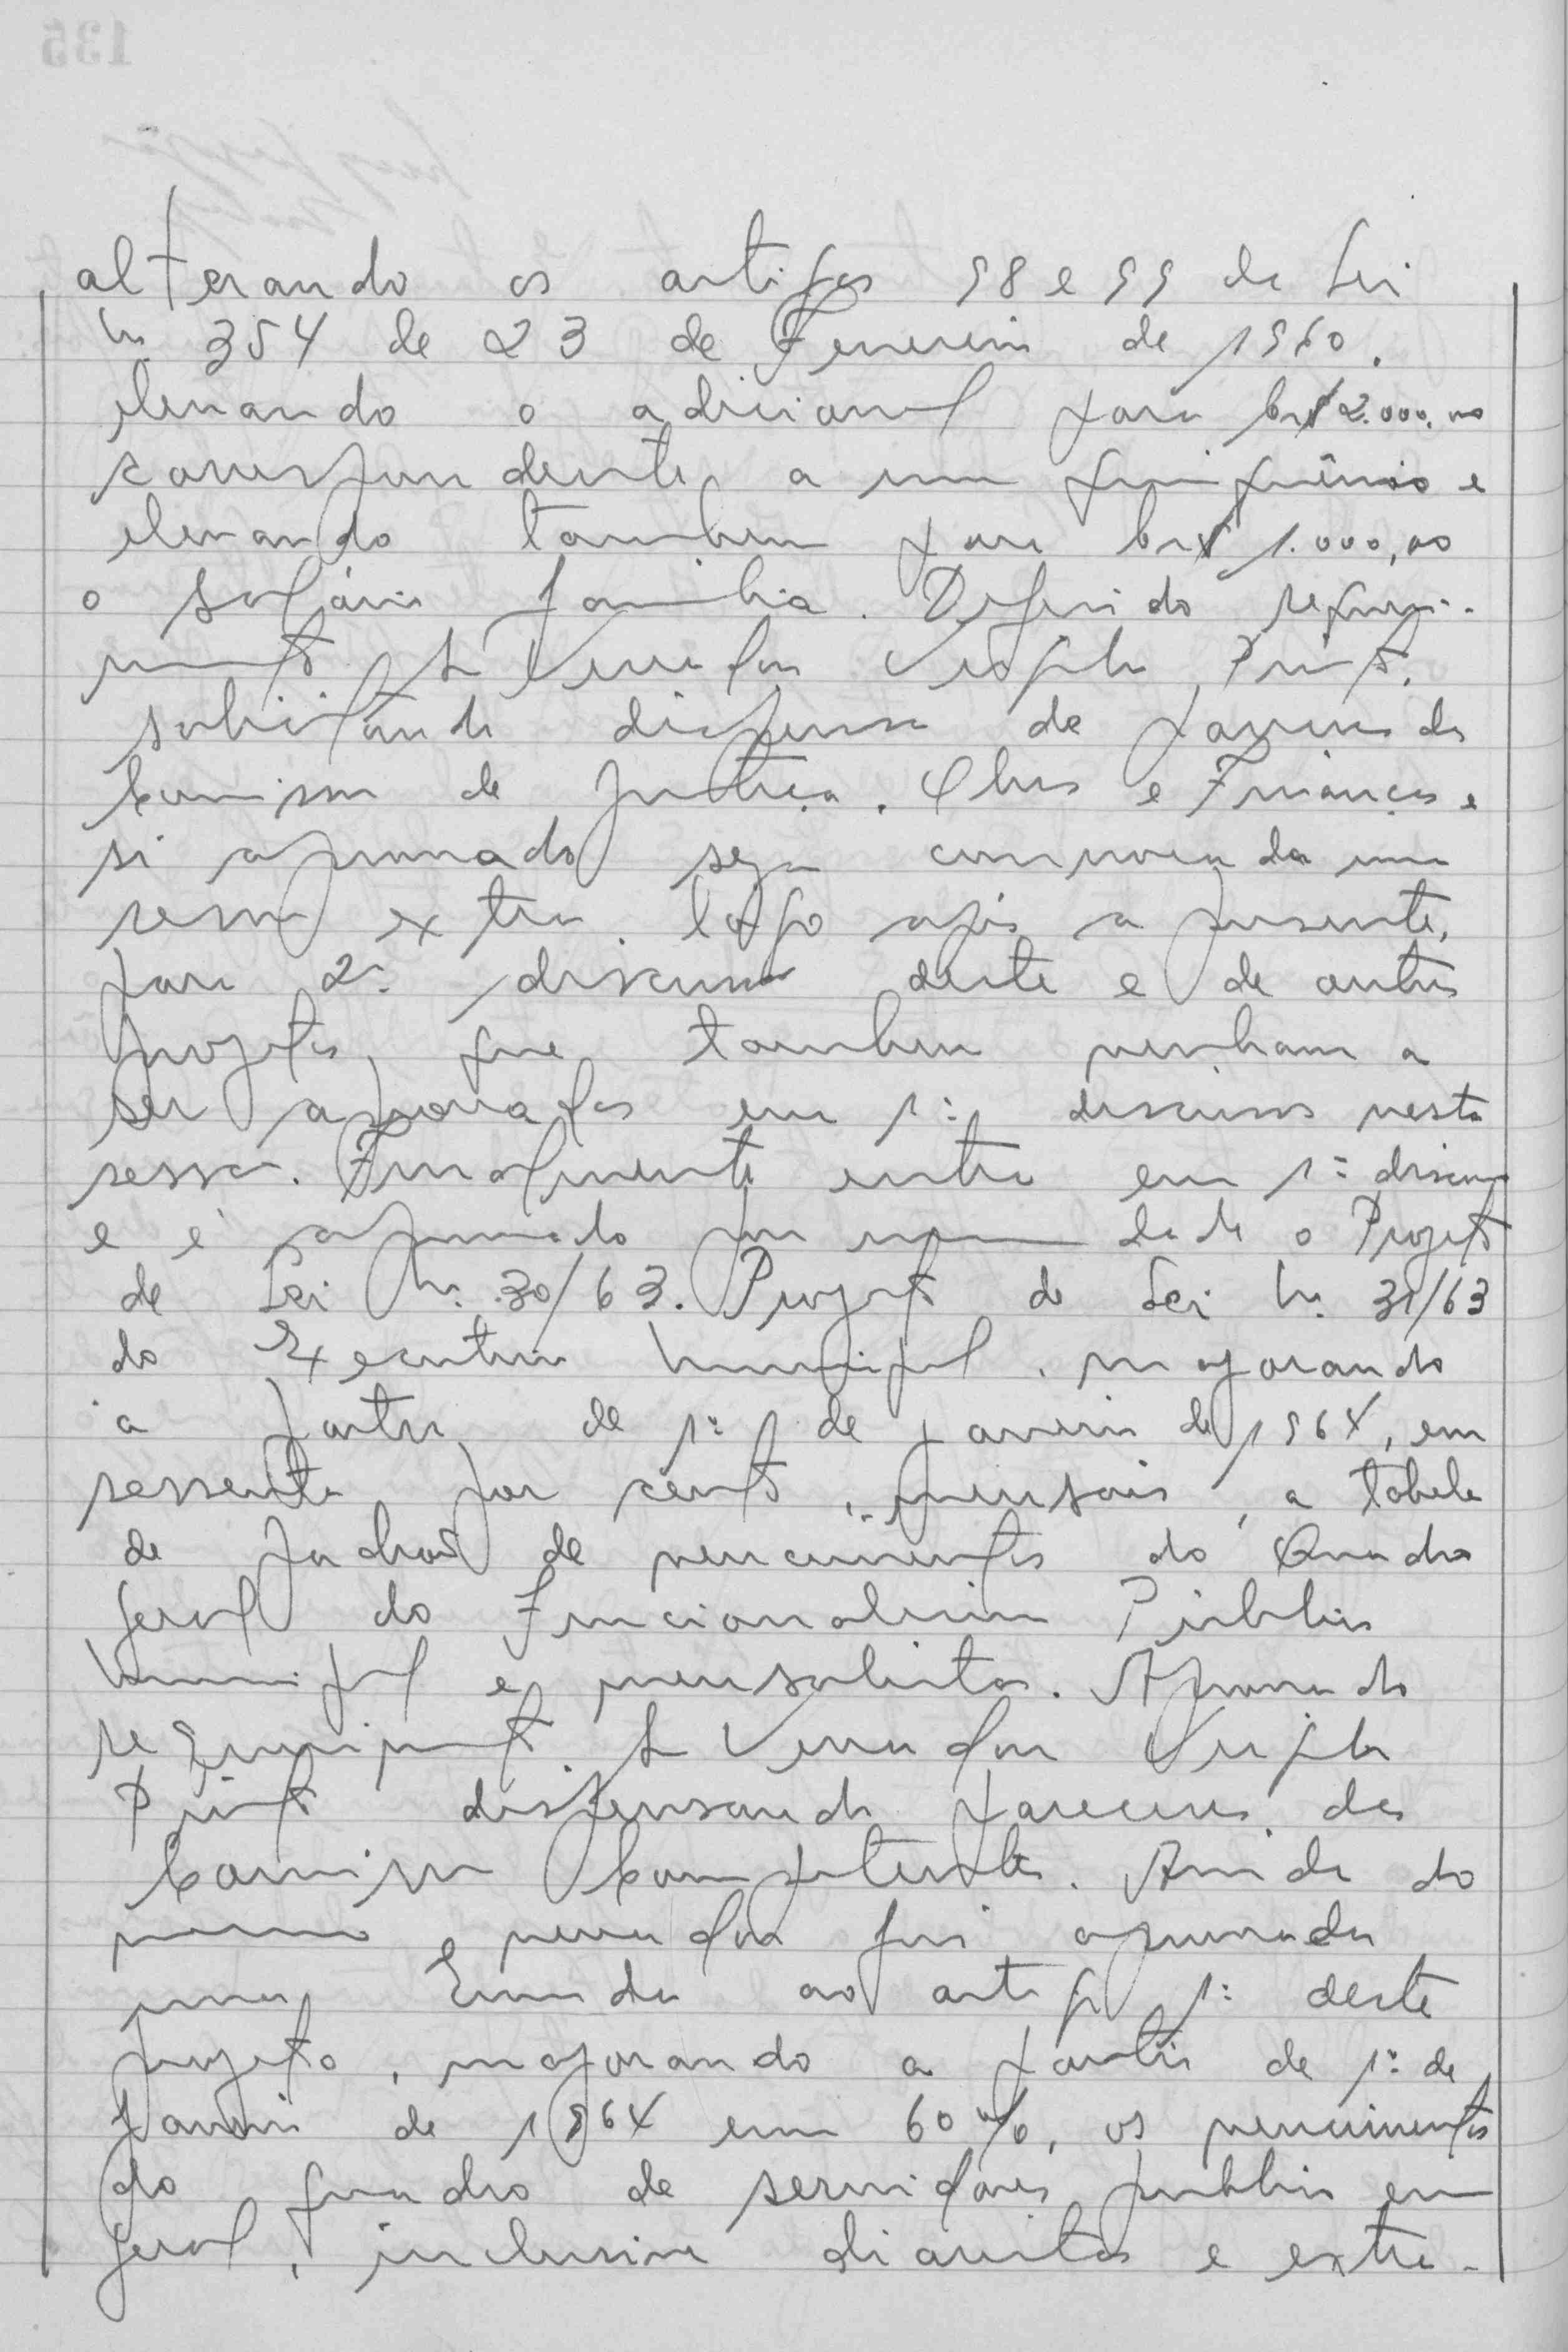 alterando os artigos 98 e 99 da Lei
Nº 354 de 23 de Fevereiro de 1960.
elevando o adicional para Cr$ 2.000,00
correspondente a um quinquênio e
elevando tambem para Cr$ 1.000,00
o salário familia. Deferido requeri-
mento do Vereador Virgilio Pinto,
solicitando dispensa de parecer da
Comissão de Justiça. Obras e Finanças e
si aprovado seja convocada uma
sessão extra. logo após a presente,
para 2ª discussão deste e de outros
projetos, que tambem venham a
ser aprovados em 1ª discussão nesta
sessão. Finalmente entra em 1ª discussão
e é aprovado por unanimidade o Projeto
de Lei Nº 30/63. Projeto de Lei Nº 31/63
do Executivo Municipal. majorando
a partir de 1º de janeiro de 1964, em
sessenta por cento, mensais, a tabela
de padrões de vencimentos do Quadro
geral do Funcionalismo Público
Municipal e mensalistas. Aprovado
requerimento do Vereador Virgilio
Pinto dispensando pareceres das
Comissões Competentes. Ainda do
mesmo vereador foi aprovada
uma Emenda ao artigo 1º deste
projeto, majorando a partir de 1º de
Janeiro de 1964 em 60%, os vencimentos
do quadro de servidores publicos em
geral, inclusive diaristas e extra-